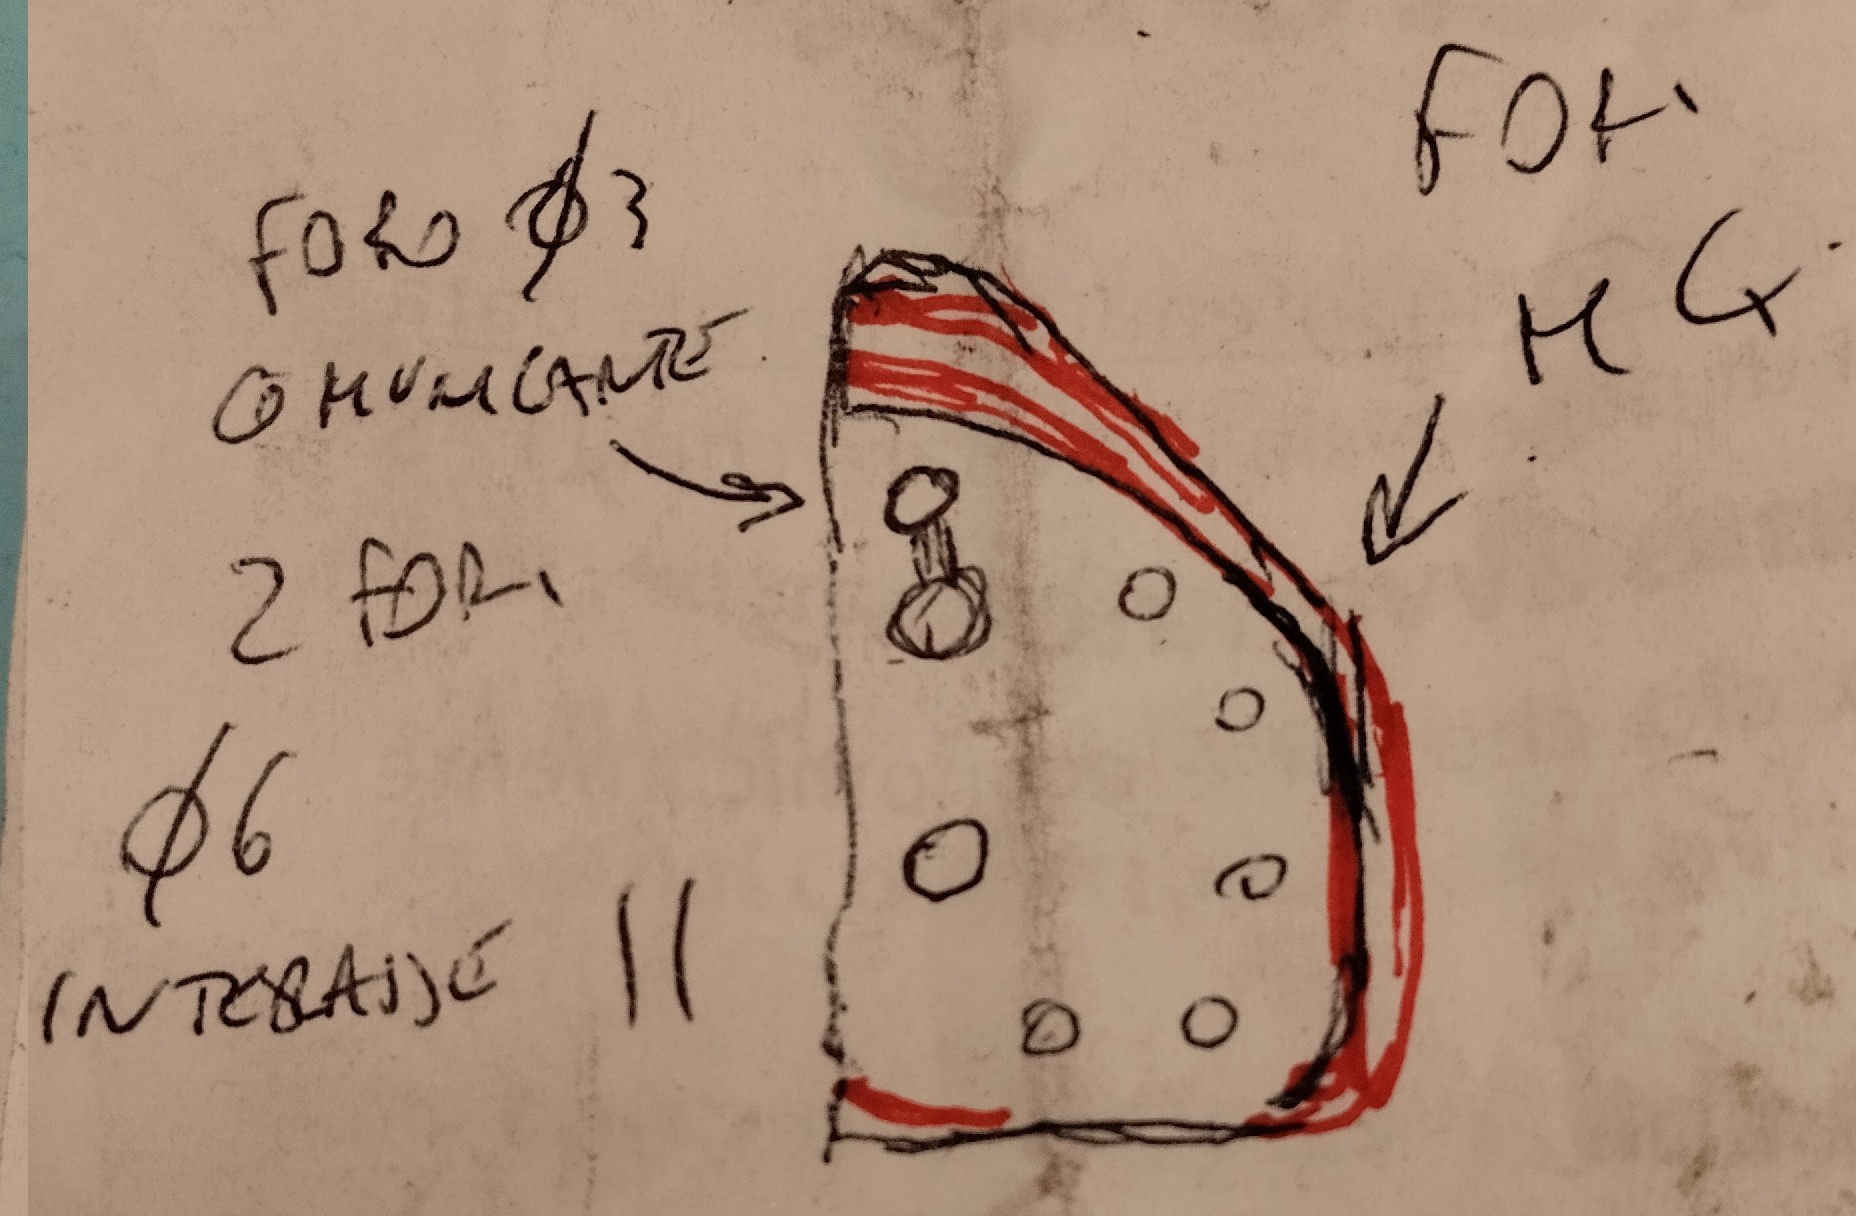 FORO Ø3
COMUNICANTE
2 FORI
Ø6
INTERASSE 11
FORI
M4